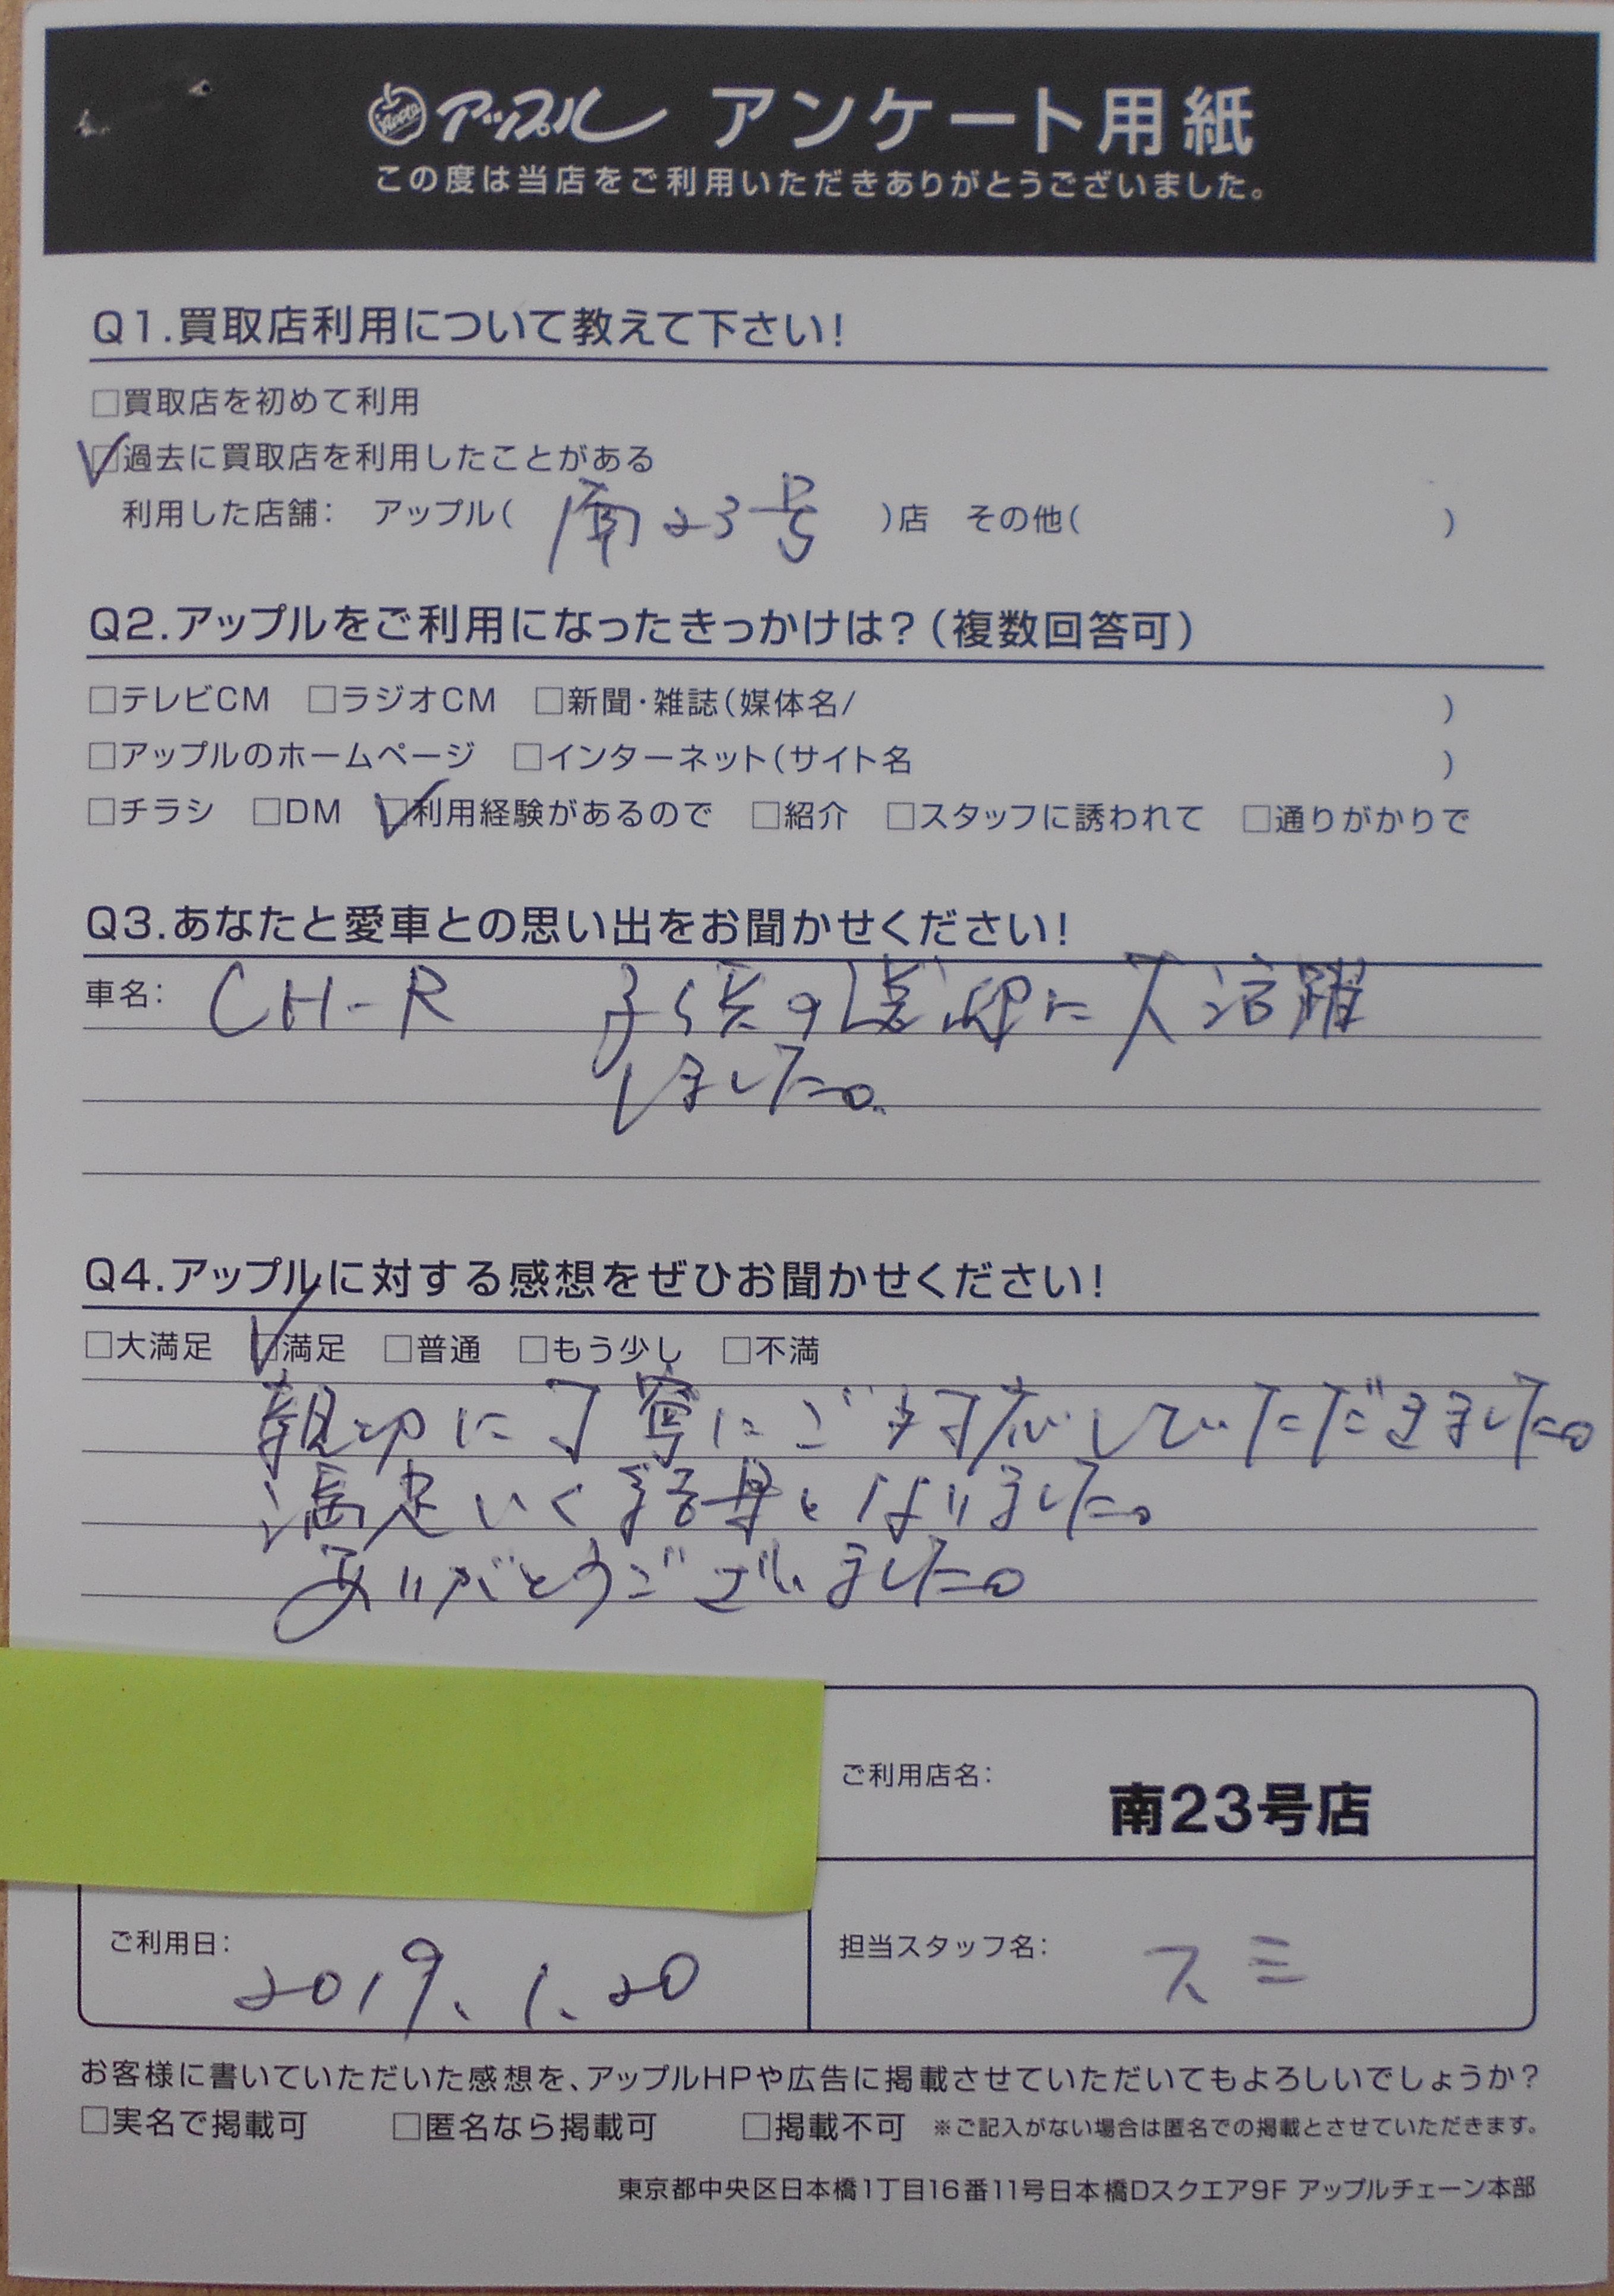 Apple アップル アンケート用紙
この度は当店をご利用いただきありがとうございました。
Q1.買取店利用について教えて下さい!
□買取店を初めて利用
☑過去に買取店を利用したことがある
利用した店舗: アップル( 南23号 )店 その他( )
Q2.アップルをご利用になったきっかけは?(複数回答可)
□テレビCM □ラジオCM □新聞・雑誌(媒体名/ )
□アップルのホームページ □インターネット(サイト名 )
□チラシ □DM ☑利用経験があるので □紹介 □スタッフに誘われて □通りがかりで
Q3.あなたと愛車との思い出をお聞かせください!
車名: CH-R 子供の送迎に大活躍
しました。
Q4.アップルに対する感想をぜひお聞かせください!
□大満足 ☑満足 □普通 □もう少し □不満
親切に丁寧にご対応していただきました。
満足いく結果となりました。
ありがとうございました。
ご利用店名: 南23号店
ご利用日: 2019.1.20 担当スタッフ名: スミ
お客様に書いていただいた感想を、アップルHPや広告に掲載させていただいてもよろしいでしょうか?
□実名で掲載可 □匿名なら掲載可 □掲載不可 ※ご記入がない場合は匿名での掲載とさせていただきます。
東京都中央区日本橋1丁目16番11号日本橋Dスクエア9F アップルチェーン本部